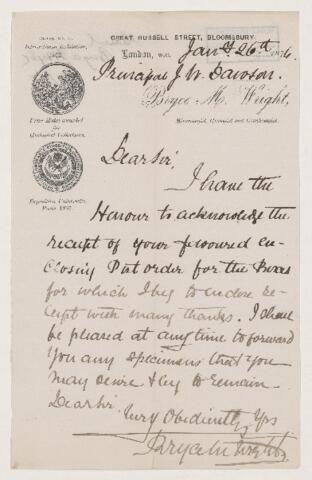 GREAT RUSSELL STREET, BLOOMSBURY.
London, W.C. Jany. 26th 187
Principal J. W. Dawson.
Bryce M. Wright,
Mineralogist, Geologist and Conchologist.
International Exhibition,
Prize Medals awarded
for
Exposition Universelle,
Paris 1867.
Dear Sir,
I have the
Honour to acknowledge the
receipt of your favoured en-
closing P.O. order for the
for which I beg to enclose re-
ceipt with many thanks. I shall
be pleased at any time to forward
you any specimens that you
may desire & beg to remain
Dear Sir
Very Obediently Yrs
Bryce M Wright